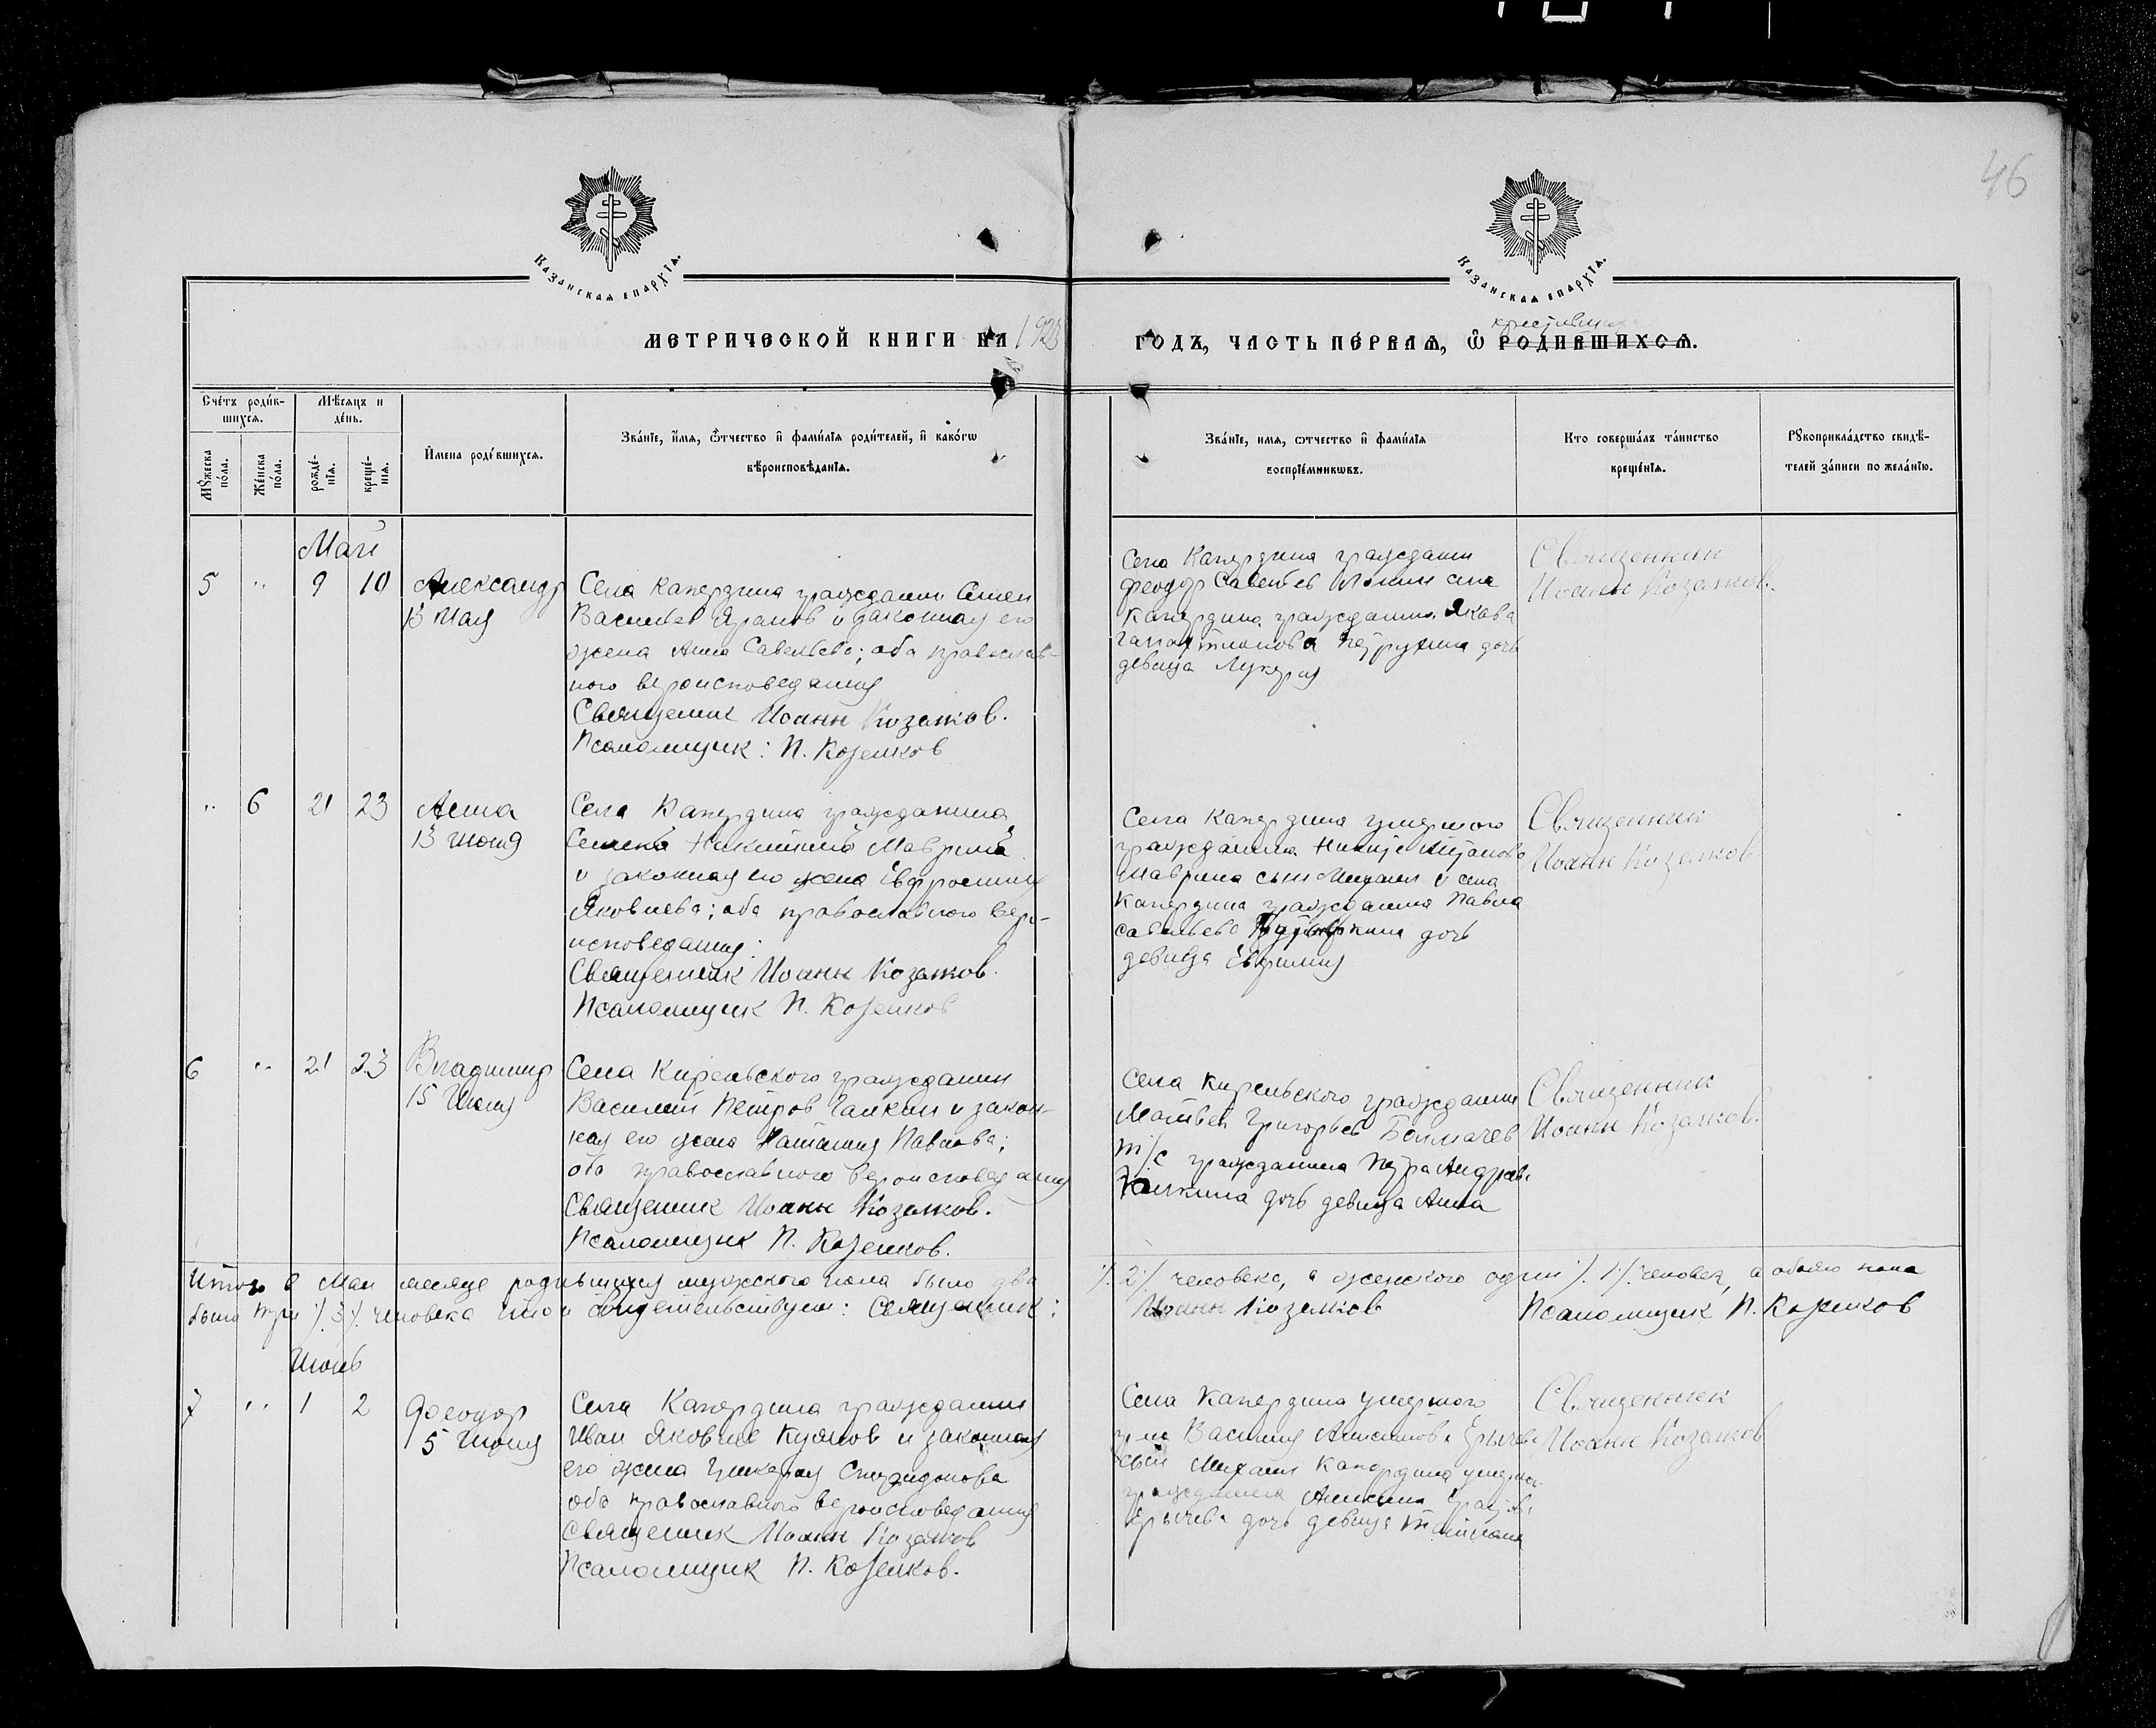 46
Казанская епархїѧ.
Казанская епархїѧ.
МЕТРИЧЕСКОЙ КНИГИ НА 1923
ГОДЪ, ЧАСТЬ ПЕ́РВАѦ, Ѡ҃ РОДИВШИХСѦ.
Сче́тъ роди́в-
шихсѧ.
Мꙋ́жеска
по́ла.
Же́нска
по́ла.
Мѣ́сѧцъ и
де́нь.
рожде́-
нїѧ.
креще́-
нїѧ.
И́мена роди́вшихсѧ.
Зва́нїе, и́мѧ, ѻ҆́тчество и҆ фами́лїѧ роди́телей, и҆ како́гѡ
вѣроисповѣ́данїѧ.
Зва́нїе, имѧ, ѻтчество и҆ фами́лїѧ
воспрїе́мникѡвъ.
Кто соверша́лъ та́инство
креще́нїѧ.
Рꙋкоприкла́дство свидѣ́-
телей за́писи по жела́нїю.
Май
5 " 9 10 Александр
13 Мая
Села Капердина гражданин Семен
Васильев и законная его
жена Анна Савельева; оба православ-
ного вероисповедания
Священник Иоанн Козелков.
Псаломщик: П. Козелков
Села Капердина гражданин
Феодор Савельев села
Капердина гражданина Якова
дочь
девица Лукерия
Священник
Иоанн Козелков.
" 6 21 23 Анна
13 Июня
Села Капердина гражданина
Семена Маврина
и законная его жена Евфросиния
Яковлева; оба православного веро-
исповедания.
Священник Иоанн Козелков.
Псаломщик П. Козелков
Села Капердина умершого
гражданина
Маврина сын Михаил и села
Капердина гражданина Павла
Савельева дочь
девица
Священник
Иоанн Козелков
6 " 21 23 Владимир
15 Июля
Села Кирельского гражданин
Василий Петров Галкин и закон-
ная его жена Наталия Павлова;
оба православного вероисповедания
Священник Иоанн Козелков.
Псаломщик П. Козелков.
Села Кирельского гражданин
Матвей Григорьев
т/с гражданина Петра
Галкина дочь девица Анна
Священник
Иоанн Козелков.
Итого в Мае месяце родившихся мужского пола было два /.2/. человека, а женского один /.1/. человек, а обоего пола
было три /.3/. человека что и свидетельствуем: Священник: Иоанн Козелков Псаломщик П. Козелков
Июнь
7 " 1 2 Феодор
5 Июня
Села Капердина гражданин
Иван Яковлев и законная
его жена Гликерия Спиридонова
оба православного вероисповедания
Священник Иоанн Козелков
Псаломщик П. Козелков.
Села Капердина умершого
Василия
сын Михаил Капердина
гражданина
дочь девица Татиана
Священник
Иоанн Козелков